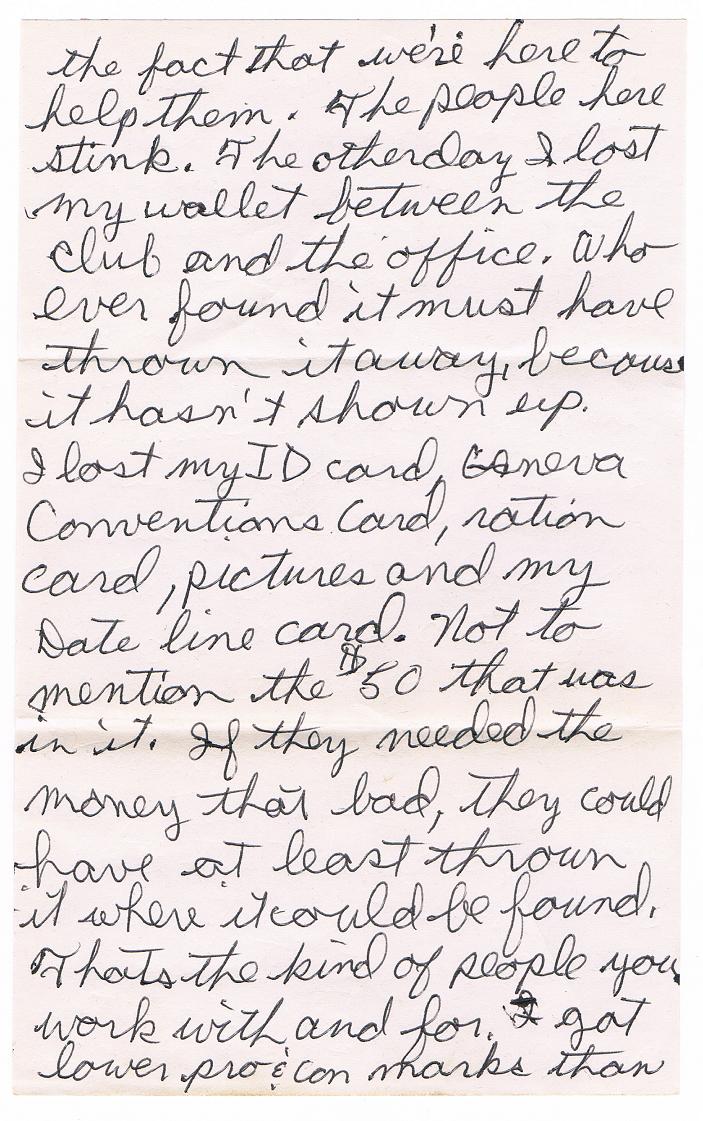 the fact that we're here to
help them. The people here
stink. The otherday I lost
my wallet between the
club and the office. Who
ever found it must have
thrown it away, becaus
it hasn't shown up.
I lost my ID card, Geneva
Conventions Card, ration
card, pictures and my
Date line card. Not to
mention the $50 that was
in it. If they needed the
money that bad, they could
have at least thrown
it where it could be found.
Thats the kind of people you
work with and for. I got
lower pro & con marks than